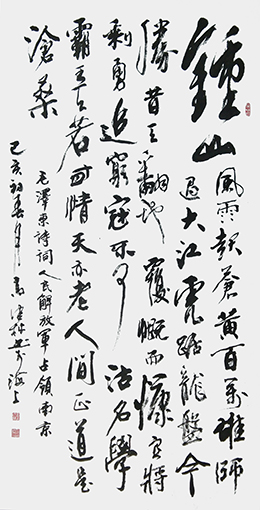 鍾山風雨起蒼黃百萬雄師
過大江虎踞龍盤今
勝昔天翻地覆慨而慷宜將
剩勇追窮寇不可沽名學
霸王天若有情天亦老人間正道是
滄桑
毛澤東詩詞人民解放軍占領南京
己亥初春 於海上